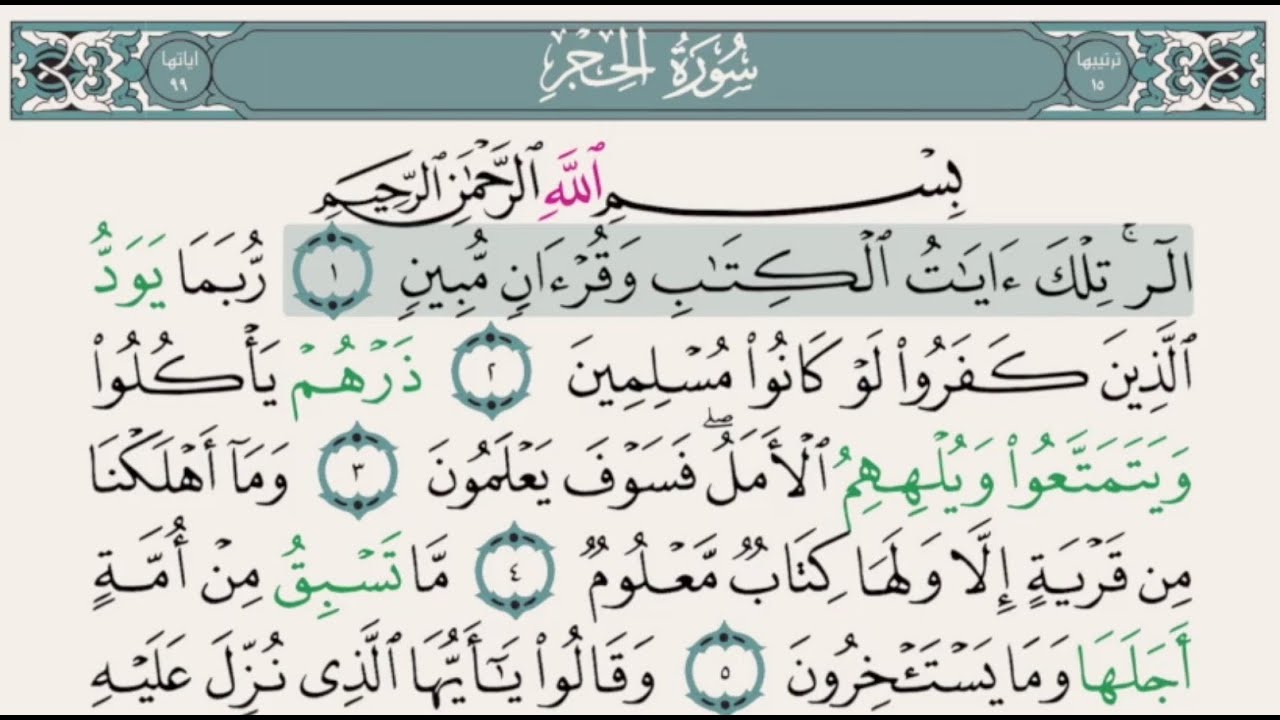 ترتيبها
١٥
سُورَةُ الحِجْرِ
اياتها
٩٩
بِسْمِ اللَّهِ الرَّحْمَٰنِ الرَّحِيمِ
الٓرۚ تِلْكَ ءَايَٰتُ ٱلْكِتَٰبِ وَقُرْءَانٍ مُّبِينٍ ١ رُّبَمَا يَوَدُّ
ٱلَّذِينَ كَفَرُوا۟ لَوْ كَانُوا۟ مُسْلِمِينَ ٢ ذَرْهُمْ يَأْكُلُوا۟
وَيَتَمَتَّعُوا۟ وَيُلْهِهِمُ ٱلْأَمَلُۖ فَسَوْفَ يَعْلَمُونَ ٣ وَمَآ أَهْلَكْنَا
مِن قَرْيَةٍ إِلَّا وَلَهَا كِتَابٌ مَّعْلُومٌ ٤ مَّا تَسْبِقُ مِنْ أُمَّةٍ
أَجَلَهَا وَمَا يَسْتَـْٔخِرُونَ ٥ وَقَالُوا۟ يَٰٓأَيُّهَا ٱلَّذِى نُزِّلَ عَلَيْهِ